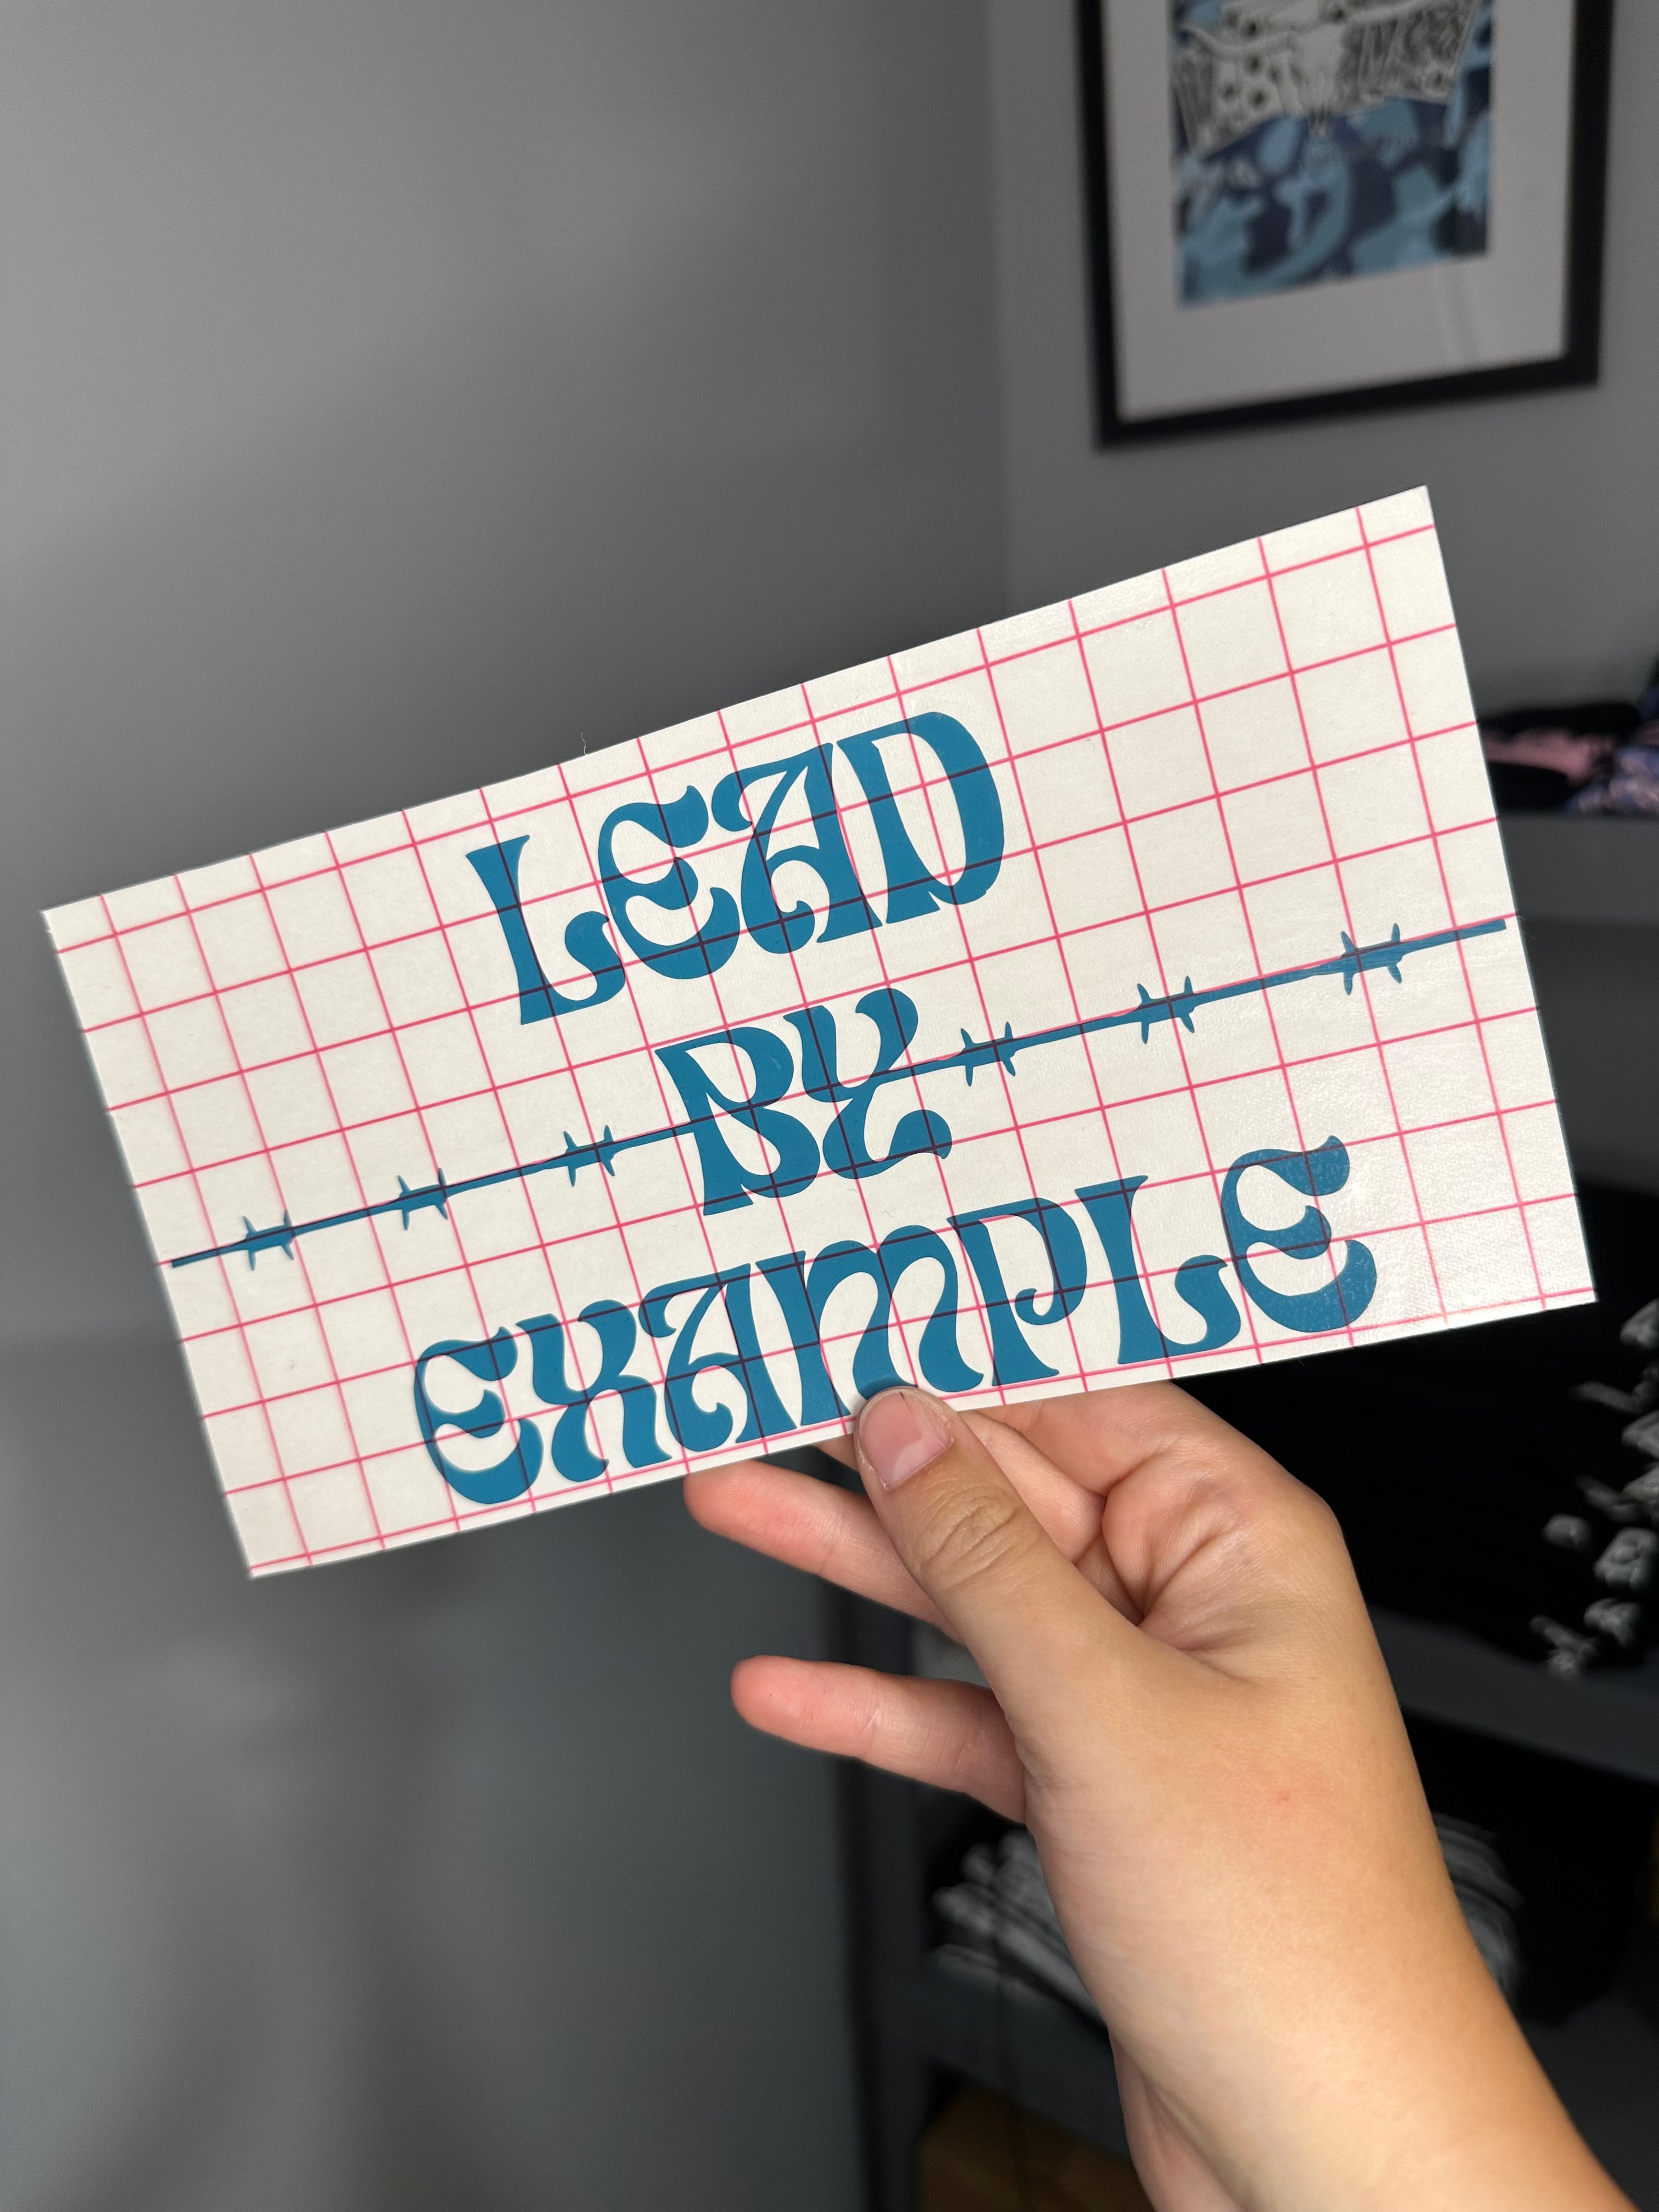 LEAD
BY
EXAMPLE